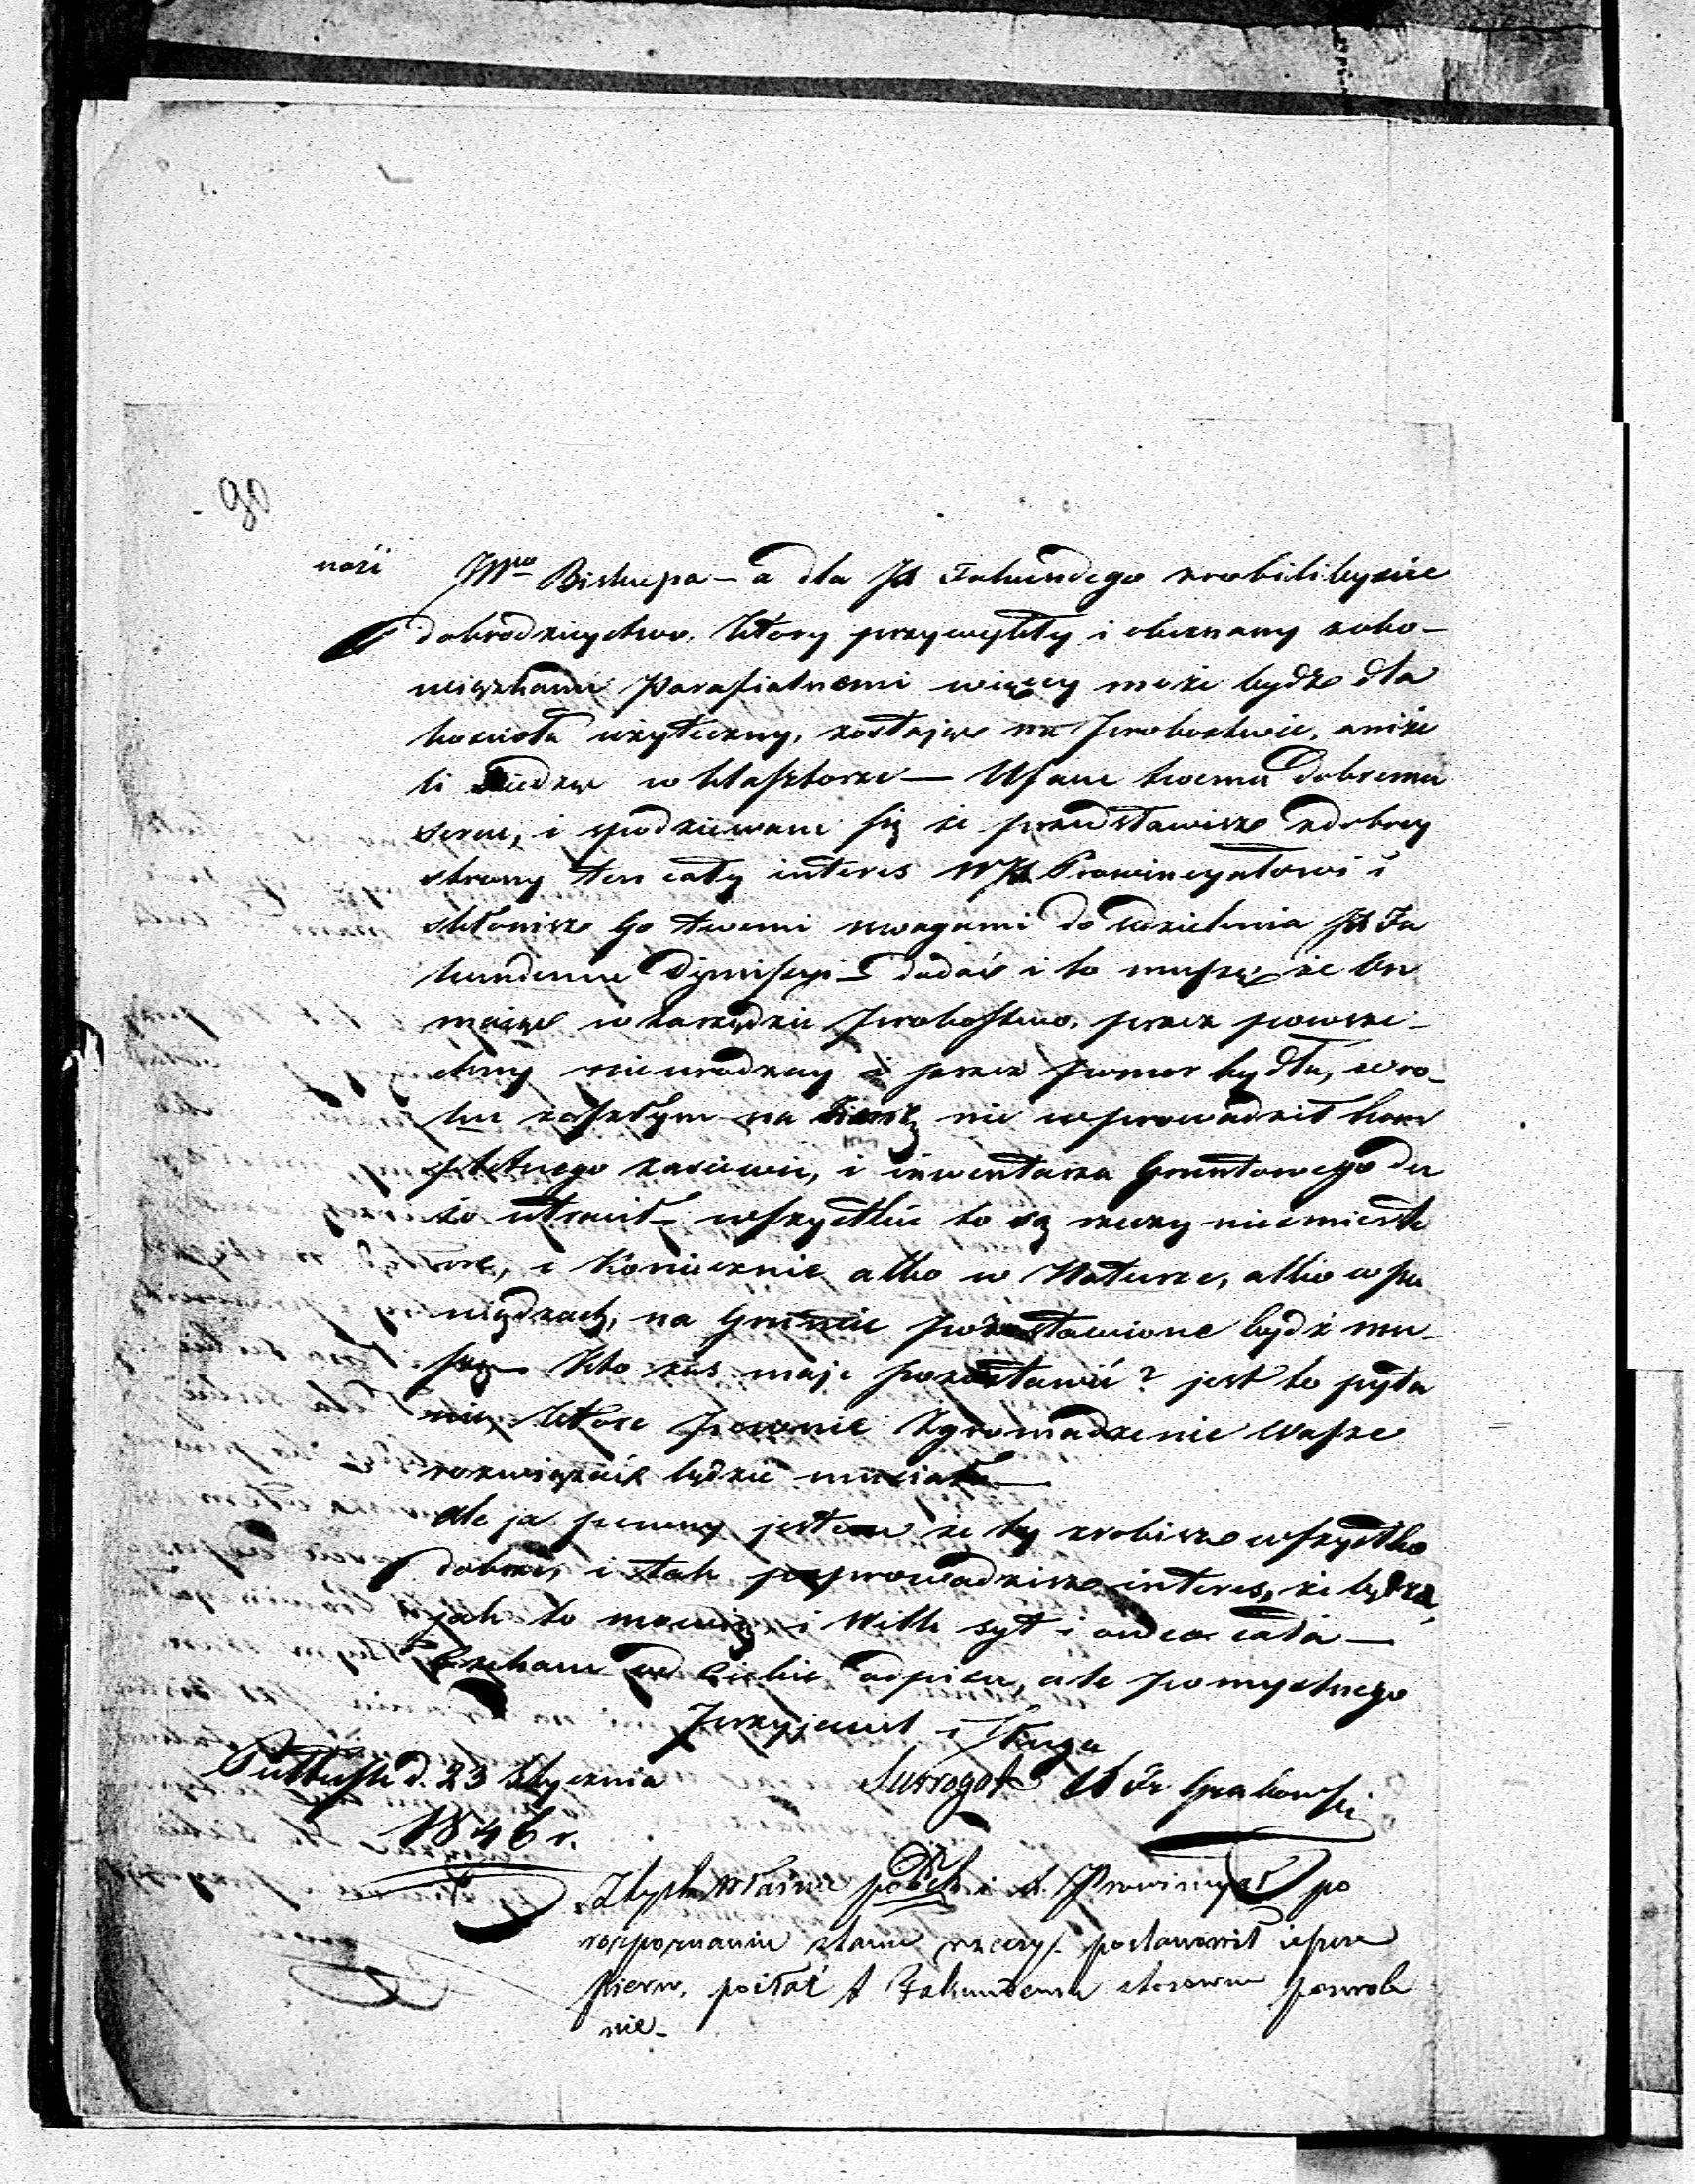 90
ności JWgo Biskupa – a dla JX Fakundego zrobilibyście
dobrodziejstwo. Który przywykły i obeznany z obo-
wiązkami Parafialnemi więcej może bydź dla
kościoła użyteczny, zostając na Probostwie, aniże
li siedząc w klasztorze — Ufam twemu Dobremu
sercu, i spodziewam się że przedstawisz z dobrey
strony ten cały interes WJX Prowincyałowi i
skłonisz Go twemi uwagami do udzielenia JX Fa
kundemu Dymissyi – dodać i to muszę że ten
mając w zarządzie Probostwo, przez powsze-
chny nieurodzay i przez pomor bydła, w ro-
ku zaszłym na zimę nie wprowadził kom
pletnego zasiewu, i inwentarza Gruntowego du
żo utracił – wszystkie to są rzeczy
i Koniecznie albo w Naturze, albo w pie
niądzach, na Gruncie pozostawione bydź mu-
szą – Kto zaś maje pozostawić? jest to pyta
nie, które pewnie Zgromadzenie Wasze
rozwiązać będzie musiało —
Ale ja pewny jestem że ty zrobisz wszystko
dobrze, i tak poprowadzisz interes, że będzie,
jak to mówią i Wilk syt i owca cała —
Czekam od Ciebie odpisu, ale pomyślnego
Przyjaciel i Sługa
Pułtusk d. 23 Stycznia Surrogat X Fr
1846 r.
Prowincyał po
rozpoznaniu stanu rzeczy postanowił
pierw. posłać X Fakundemu stosowne pozwole
nie –